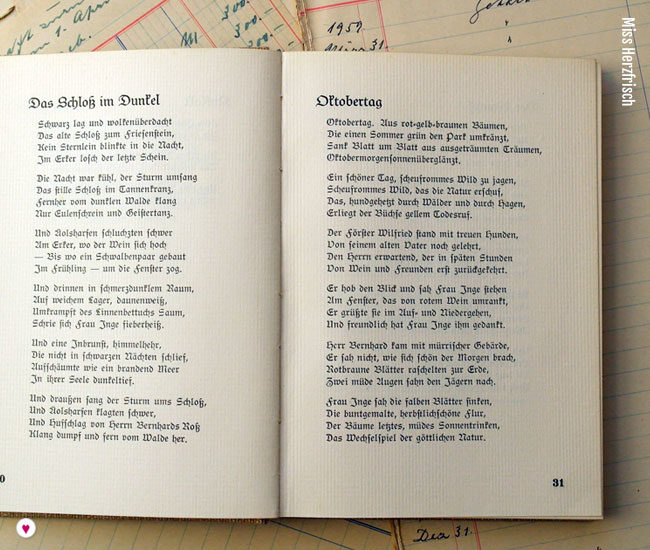 1957
März 31.
300.-
300.-
300.-
1. April
Miss Herzfrisch
Das Schloß im Dunkel
Schwarz lag und wolkenüberdacht
Das alte Schloß zum Friesenstein,
Kein Sternlein blinkte in die Nacht,
Im Erker losch der letzte Schein.
Die Nacht war kühl, der Sturm umsang
Das stille Schloß im Tannenkranz,
Fernher vom dunklen Walde klang
Nur Eulenschrein und Geistertanz.
Und Aolsharfen schluchzten schwer
Am Erker, wo der Wein sich hoch
— Bis wo ein Schwalbenpaar gebaut
Im Frühling — um die Fenster zog.
Und drinnen in schmerzdunklem Raum,
Auf weichem Lager, daunenweiß,
Umkrampft des Linnenbettuchs Saum,
Schrie sich Frau Inge fieberheiß.
Und eine Inbrunst, himmelhehr,
Die nicht in schwarzen Nächten schlief,
Aufschäumte wie ein brandend Meer
In ihrer Seele dunkeltief.
Und draußen sang der Sturm ums Schloß,
Und Aolsharfen klagten schwer,
Und Hufschlag von Herrn Bernhards Roß
Klang dumpf und fern vom Walde her.
0
Oktobertag
Oktobertag. Aus rot-gelb-braunen Bäumen,
Die einen Sommer grün den Park umkränzt,
Sank Blatt um Blatt aus ausgeträumten Träumen,
Oktobermorgensonnenüberglänzt.
Ein schöner Tag, scheufrommes Wild zu jagen,
Scheufrommes Wild, das die Natur erschuf,
Das, hundgehetzt durch Wälder und durch Hagen,
Erliegt der Büchse gellem Todesruf.
Der Förster Wilfried stand mit treuen Hunden,
Von seinem alten Vater noch gelehrt,
Den Herrn erwartend, der in späten Stunden
Von Wein und Freunden erst zurückgekehrt.
Er hob den Blick und sah Frau Inge stehen
Am Fenster, das von rotem Wein umrankt,
Er grüßte sie im Auf- und Niedergehen,
Und freundlich hat Frau Inge ihm gedankt.
Herr Bernhard kam mit mürrischer Gebärde,
Er sah nicht, wie sich schön der Morgen brach,
Rotbraune Blätter raschelten zur Erde,
Zwei müde Augen sahn den Jägern nach.
Frau Inge sah die falben Blätter sinken,
Die buntgemalte, herbstlichschöne Flur,
Der Bäume letztes, müdes Sonnentrinken,
Das Wechselspiel der göttlichen Natur.
31
Dez 31.